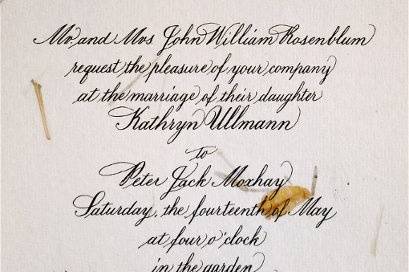 Mr and Mrs John William Rosenblum
request the pleasure of your company
at the marriage of their daughter
Kathryn Ullmann
to
Peter Jack Moxhay
Saturday, the fourteenth of May
at four o'clock
in the garden